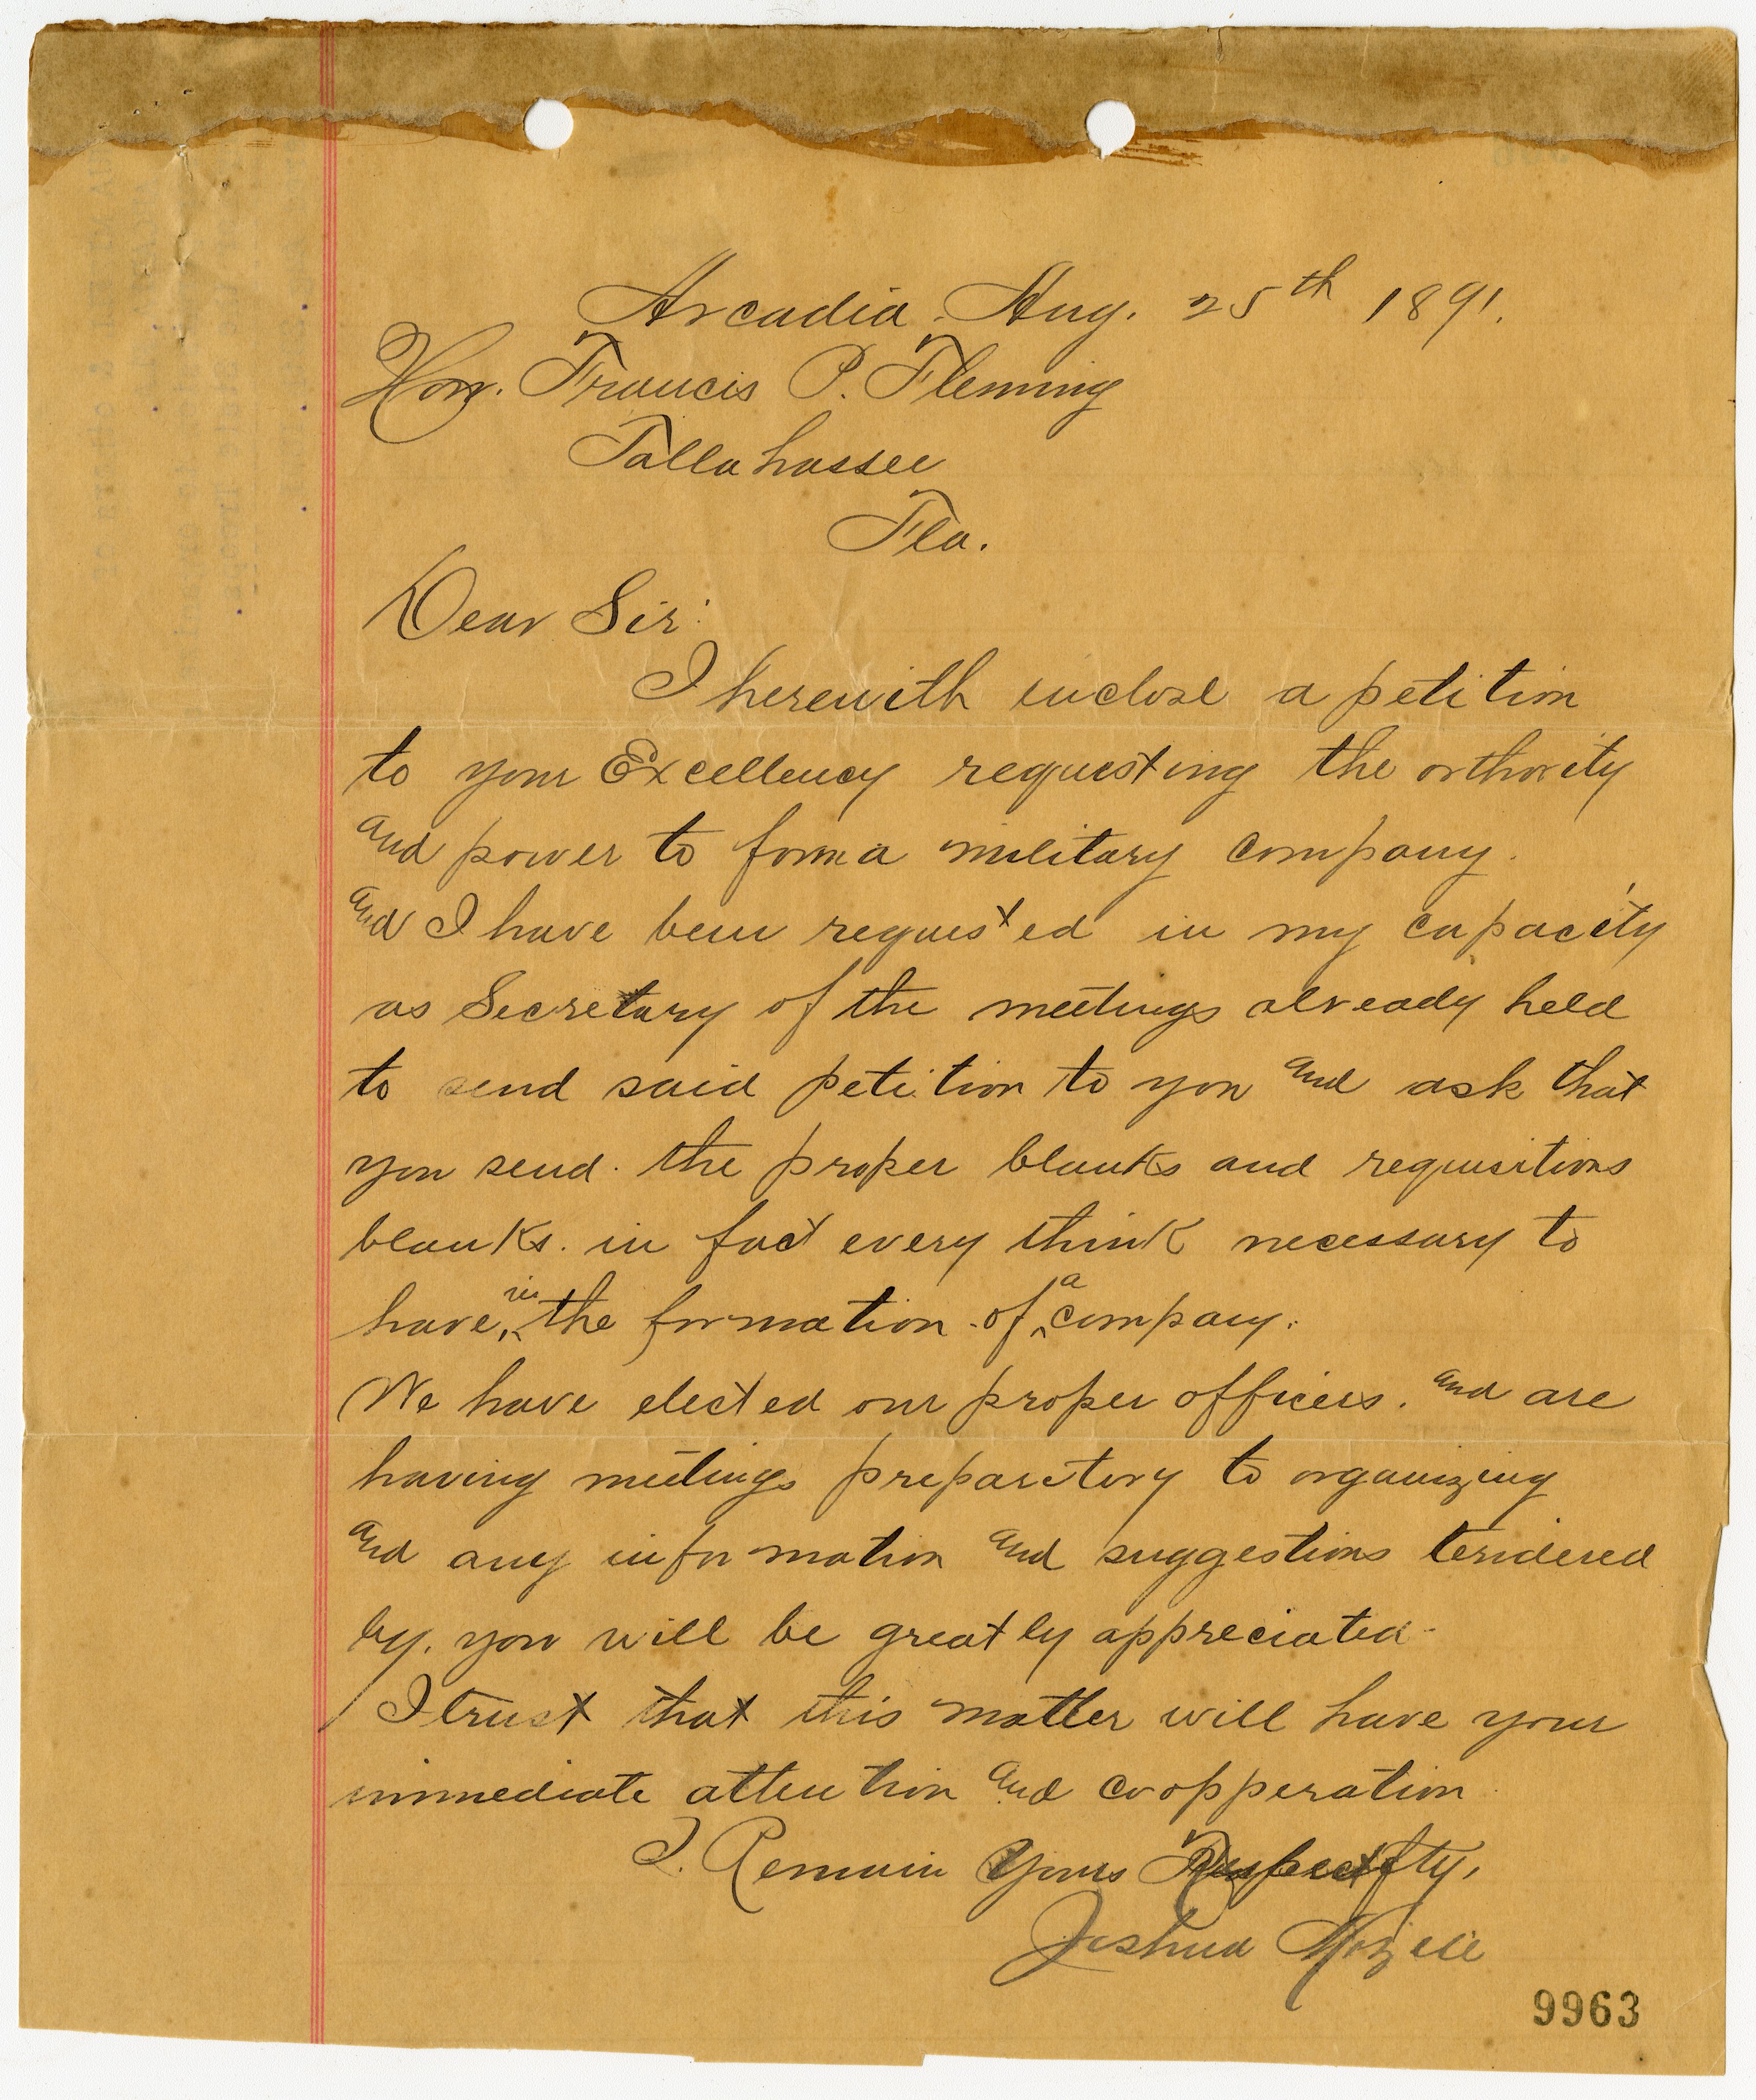 Arcadia. Aug. 25th 1891.
Hon. Francis P. Fleming
Tallahassee
Fla.
Dear Sir:
I herewith enclose a petition
to your Excellency requesting the orthority
and power to form a military company.
and I have been requested in my capacity
as Secretary of the meetings already held
to send said petition to you and ask that
you send. the proper blanks and requisitions
blanks. in fact every think necessary to
have, in the formation of a company.
We have elected our proper officers. and are
having meetings preparitory to organizing
and any information and suggestions tendered
by. you will be greatly appreciated-
I trust that this matter will have your
immediate attention and coopperation
I. Remain Yours Respectfly,
Joshua Mizell
9963